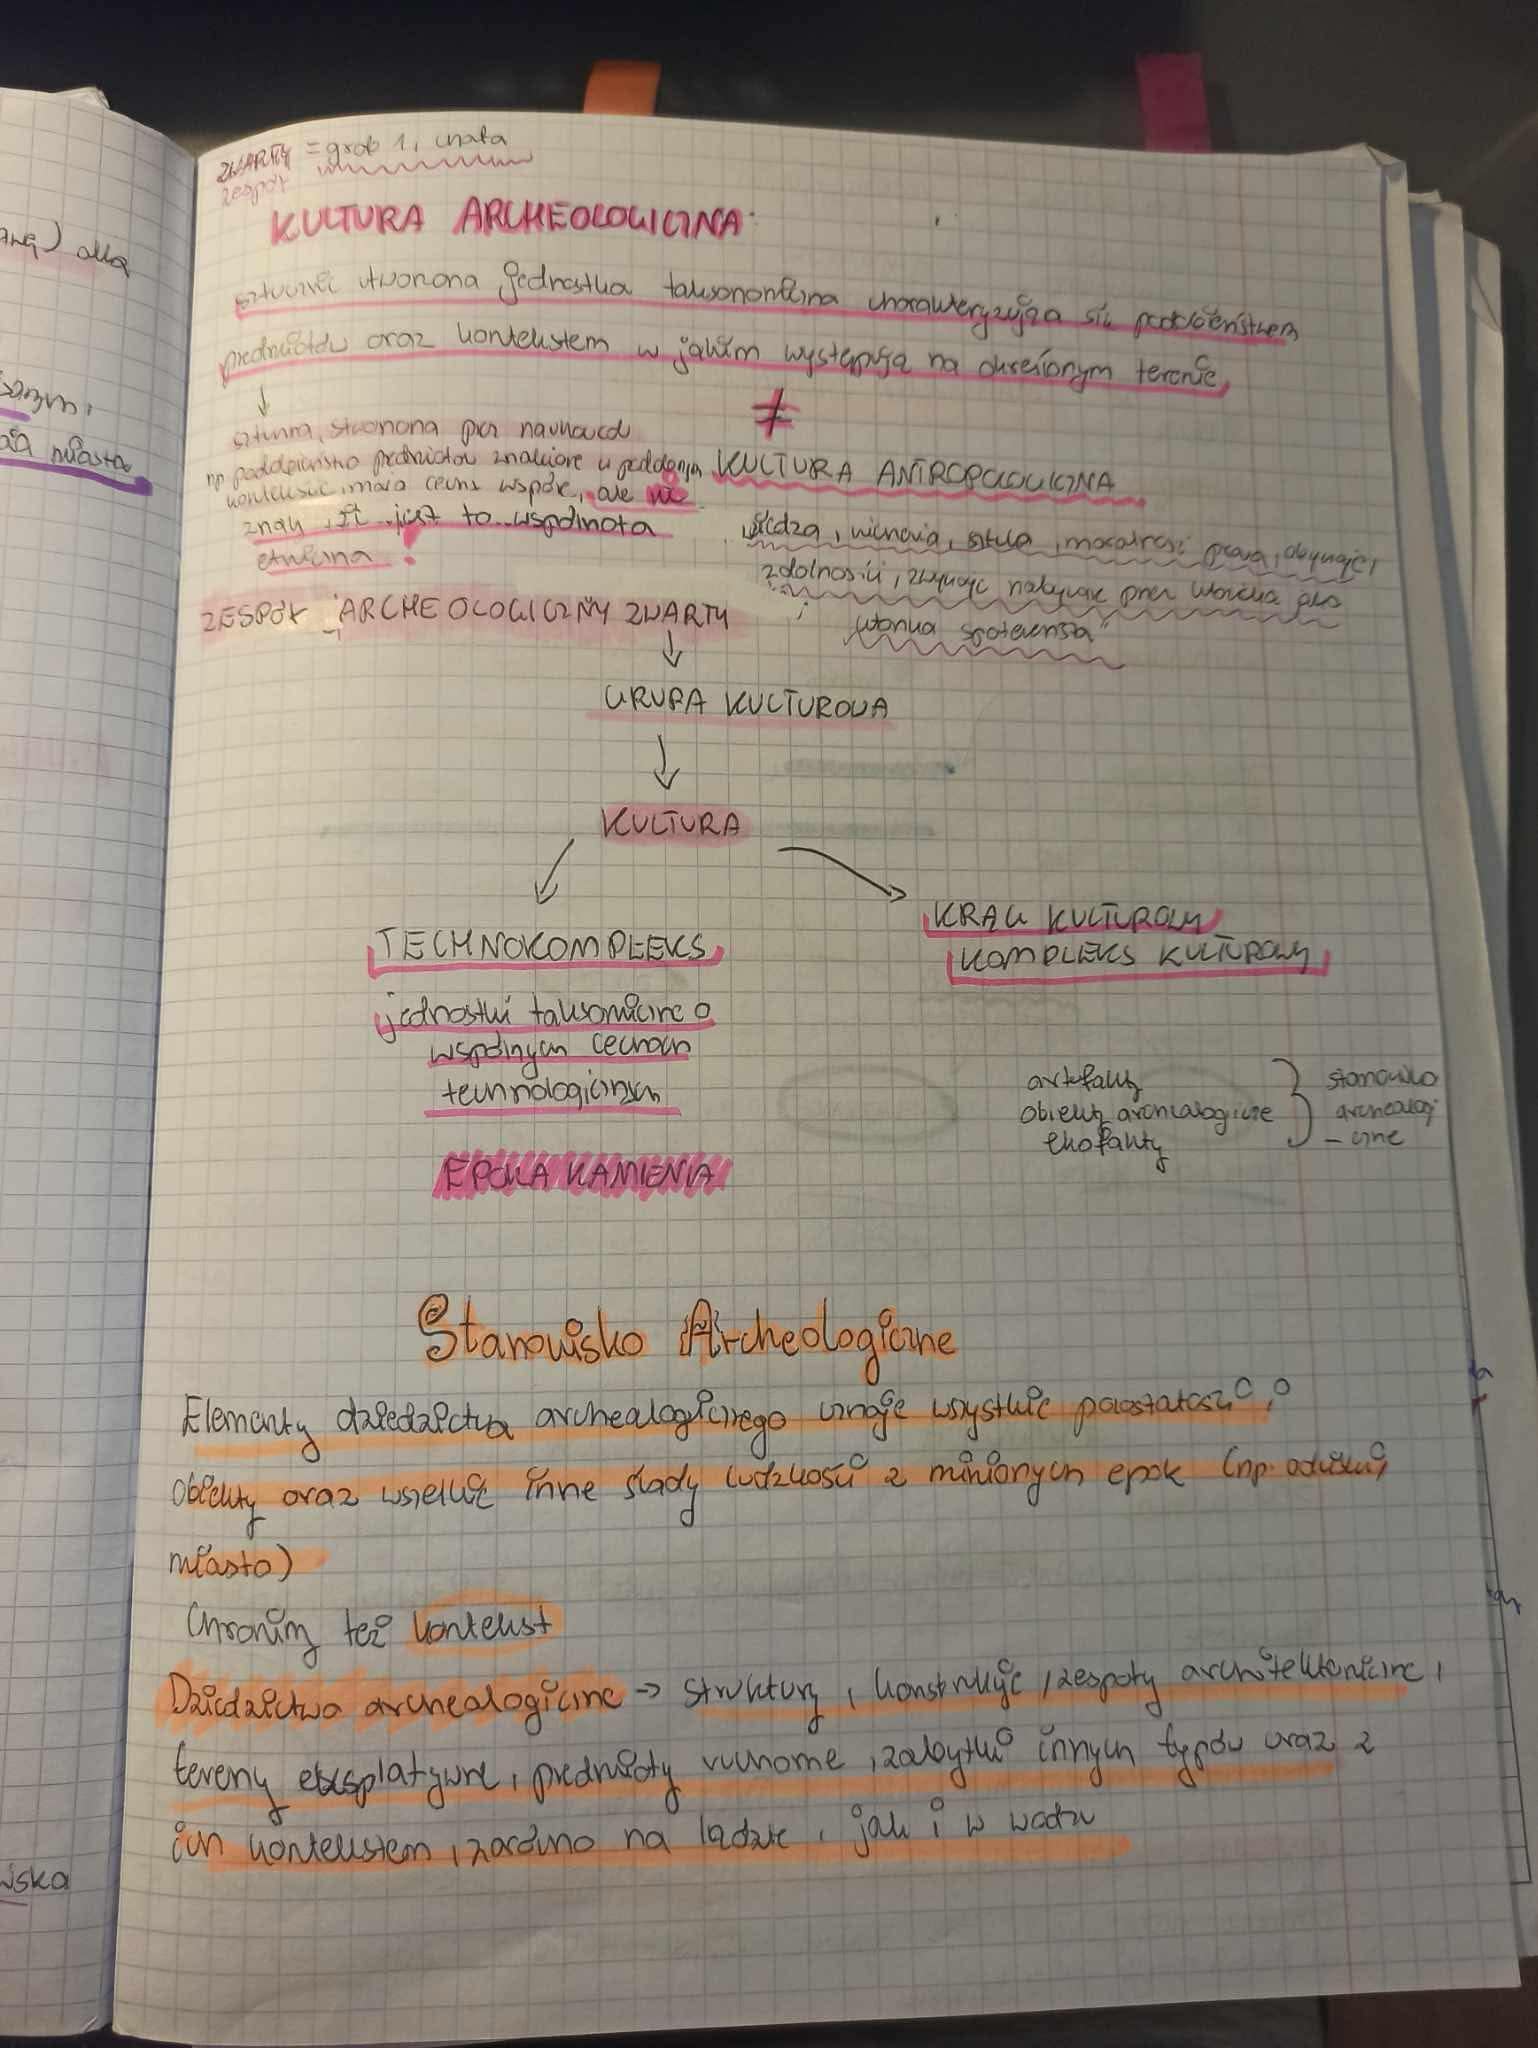 ZWARTY = grob 1, chata
zespół
KULTURA ARCHEOLOGICZNA:
sztucznie utworzona jednostka taksonomiczna charakteryzująca się podobieństwem
przedmiotów oraz kontekstem w jakim występują na określonym terenie,
↓
≠
sztuczna, stworzona przez naukowców
np. podobieństwo przedmiotów znalezione w podobnym
kontekście, mają cechy wspólne, ale nie
znaczy, że jest to wspólnota
etniczna !
KULTURA ANTROPOLOGICZNA
wiedza, wierzenia, sztuka, moralność, prawa, obyczaje,
zdolności, zwyczaje nabywane przez człowieka jako
członka społeczeństwa"
ZESPÓŁ ARCHEOLOGICZNY ZWARTY
↓
GRUPA KULTUROWA
↓
KULTURA
TECHNOKOMPLEKS
KRĄG KULTUROWY
KOMPLEKS KULTUROWY
jednostki taksomiczne o
wspólnych cechach
technologicznych
artefakty
obiekty archealogiczne
ekofakty
stanowisko
archealogi
-czne
EPOKA KAMIENIA
Stanowisko Archeologiczne
Elementy dziedzictwa archealogicznego uznaje wszystkie pozostałości,
obiekty oraz wszelkie inne ślady ludzkości z minionych epok (np. odciski,
miasto)
Chronimy też kontekst
Dziedzictwo archealogiczne → struktury, konstrukcje, zespoły architektoniczne,
tereny eksplatywne, przedmioty ruchome, zabytki innych typów oraz z
ich kontekstem, zarówno na lądzie, jak i w wodzie